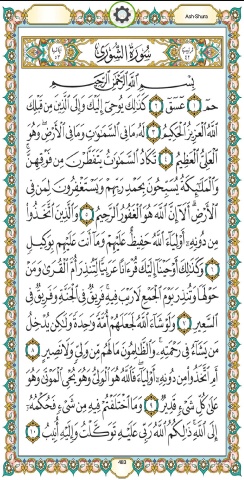 Ash-Shura
سُورَةُ الشُّورَىٰ
بِسْمِ اللَّهِ الرَّحْمَٰنِ الرَّحِيمِ
حمٓ ١ عٓسٓقٓ ٢ كَذَٰلِكَ يُوحِىٓ إِلَيْكَ وَإِلَى الَّذِينَ مِن قَبْلِكَ
اللَّهُ الْعَزِيزُ الْحَكِيمُ ٣ لَهُۥ مَا فِى السَّمَٰوَٰتِ وَمَا فِى الْأَرْضِ وَهُوَ
الْعَلِىُّ الْعَظِيمُ ٤ تَكَادُ السَّمَٰوَٰتُ يَتَفَطَّرْنَ مِن فَوْقِهِنَّ
وَالْمَلَٰٓئِكَةُ يُسَبِّحُونَ بِحَمْدِ رَبِّهِمْ وَيَسْتَغْفِرُونَ لِمَن فِى
الْأَرْضِ أَلَآ إِنَّ اللَّهَ هُوَ الْغَفُورُ الرَّحِيمُ ٥ وَالَّذِينَ اتَّخَذُوا
مِن دُونِهِۦٓ أَوْلِيَآءَ اللَّهُ حَفِيظٌ عَلَيْهِمْ وَمَآ أَنتَ عَلَيْهِم بِوَكِيلٍ
٦ وَكَذَٰلِكَ أَوْحَيْنَآ إِلَيْكَ قُرْءَانًا عَرَبِيًّا لِّتُنذِرَ أُمَّ الْقُرَىٰ وَمَنْ
حَوْلَهَا وَتُنذِرَ يَوْمَ الْجَمْعِ لَا رَيْبَ فِيهِ فَرِيقٌ فِى الْجَنَّةِ وَفَرِيقٌ فِى
السَّعِيرِ ٧ وَلَوْ شَآءَ اللَّهُ لَجَعَلَهُمْ أُمَّةً وَٰحِدَةً وَلَٰكِن يُدْخِلُ
مَن يَشَآءُ فِى رَحْمَتِهِۦ وَالظَّٰلِمُونَ مَا لَهُم مِّن وَلِىٍّ وَلَا نَصِيرٍ ٨
أَمِ اتَّخَذُوا مِن دُونِهِۦٓ أَوْلِيَآءَ فَاللَّهُ هُوَ الْوَلِىُّ وَهُوَ يُحْىِ الْمَوْتَىٰ وَهُوَ
عَلَىٰ كُلِّ شَىْءٍ قَدِيرٌ ٩ وَمَا اخْتَلَفْتُمْ فِيهِ مِن شَىْءٍ فَحُكْمُهُۥٓ
إِلَى اللَّهِ ذَٰلِكُمُ اللَّهُ رَبِّى عَلَيْهِ تَوَكَّلْتُ وَإِلَيْهِ أُنِيبُ ١٠
483